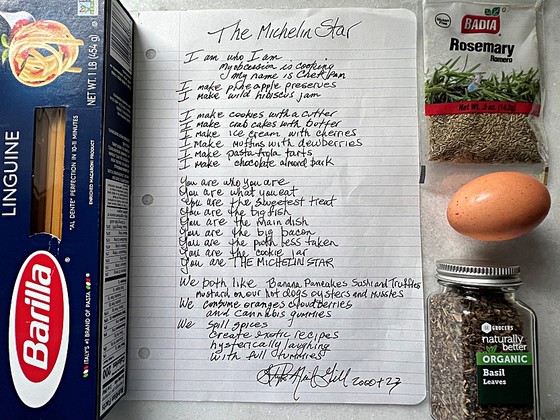 The Michelin Star
I am who I am
my obsession is cooking
my name is Chef Jan
I make pineapple preserves
I make wild hibiscus jam
I make cookies with a cutter
I make cab cakes with butter
I make ice cream with cherries
I make muffins with dewberries
I make pasta frola tarts
I make chocolate almond bark
You are who you are
You are what you eat
You are the sweetest treat
You are the big fish
You are the main dish
You are the big bacon
You are the path less taken
You are the cookie jar
You are THE MICHELIN STAR
We both like Banana Pancakes Sushi and Truffles
mustard on our hot dogs oysters and mussles
We consume oranges cloudberries
and cannabis gummies
We spill spices
create exotic recipes
hysterically laughing
with full tummies
2000+23
NET WT. 1 LB (454 g)
LINGUINE
"AL DENTE" PERFECTION IN 10-11 MINUTES
ENRICHED MACARONI PRODUCT
Barilla
ITALY'S #1 BRAND OF PASTA
BADIA
Rosemary
Romero
Net Wt. .5 oz. (14.1g)
GROCERS
naturally
better
ORGANIC
Basil
Leaves